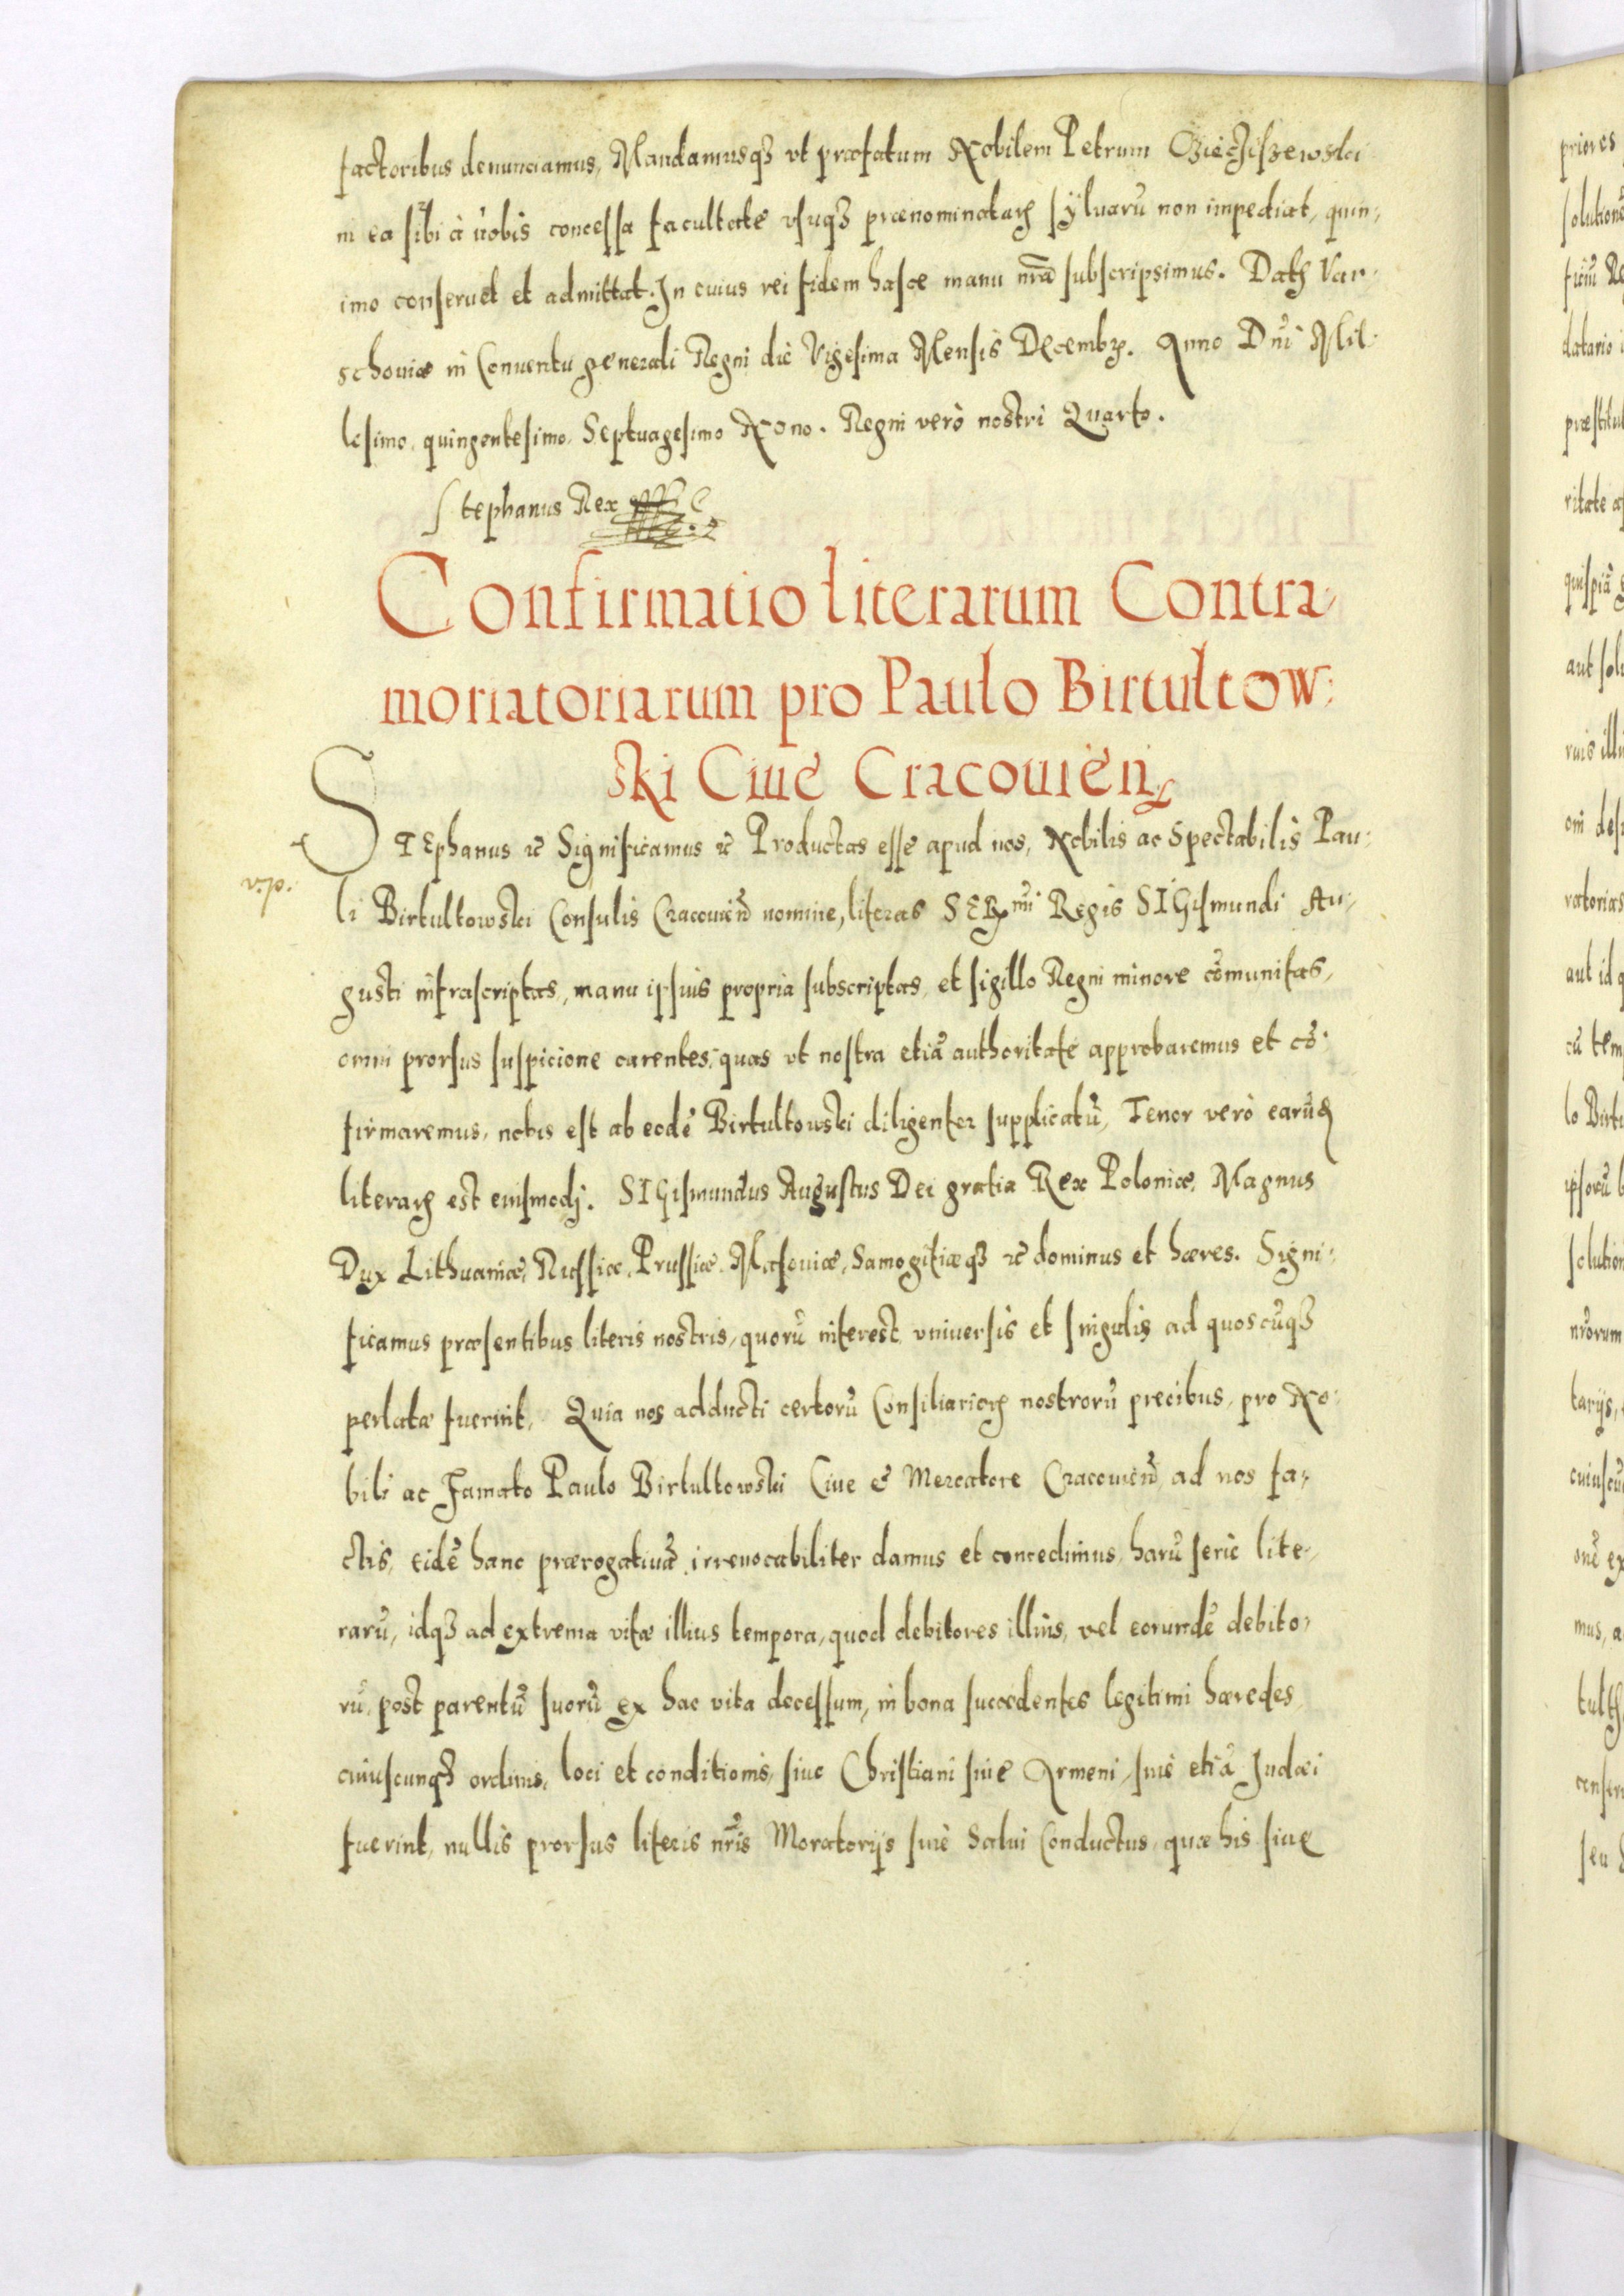 factoribus denunciamus, Mandamusq3 vt præfatum Nobilem Petrum
in ea sibi à nobis concessa facultate vsuq3 prænominataꝝ sÿluarū non impediat, quin,
imo conseruet et admittat. In cuius rei fidem hasce manu nrã subscripsimus. Datꝝ Var-
schouiæ in Conuentu generali Regni die Vigesima Mensis Decembꝝ. Anno Dñi Mil-
lesimo, quingentesimo, Septuagesimo Nono. Regni verò nostri Quarto.
Stephanus Rex
Confirmatio literarum Contra,
moriatoriarum pro Paulo Birtultow:
ski Ciue Cracouien̄
STEphanus ꝛc Significamus ꝛc Productas esse apud nos, Nobilis ac Spectabilis Pau:
li Birtultowski Consulis Cracouien̄ nomine, literas SERmi Regis SIGismundi Au,
gusti infrascriptas, manu ipsius propria subscriptas, et sigillo Regni minore cōmunitas,
omni prorsus suspicione carentes, quas vt nostra etiā authoritate approbaremus et cō:
firmaremus, nobis est ab eodē Birtultowski diligenter supplicatū, Tenor verò earūꝝ
literaꝝ est eiusmodj. SIGismundus Augustus Dei gratia Rex Poloniæ, Magnus
Dux Lithuaniæ, Russiæ, Prussiæ, Masouiæ, Samogitiæq3 ꝛc dominus et hæres. Signi:
ficamus præsentibus literis nostris, quorū interest, vniuersis et singulis ad quoscūq3
perlatæ fuerint, Quia nos adducti certorū Consiliarioꝝ nostrorū precibus, pro No:
bili ac Famato Paulo Birtultowski Ciue & Mercatore Cracouien̄ ad nos fa,
ctis, eidē hanc prærogatiuā irreuocabiliter damus et concedimus, harū serie lite,
rarū, idq3 ad extrema vitæ illius tempora, quod debitores illius, vel eorundē debito,
rū, post parentū suorū ex hac vita decessum, in bona succedentes legitimi hæredes
cuiuscunq3 ordinis, loci et conditionis, siue Christiani siue Armeni, siue etiā Judæi
fuerint, nullis prorsus literis nr̃is Moratorijs siue Salui Conductus, quæ his siue